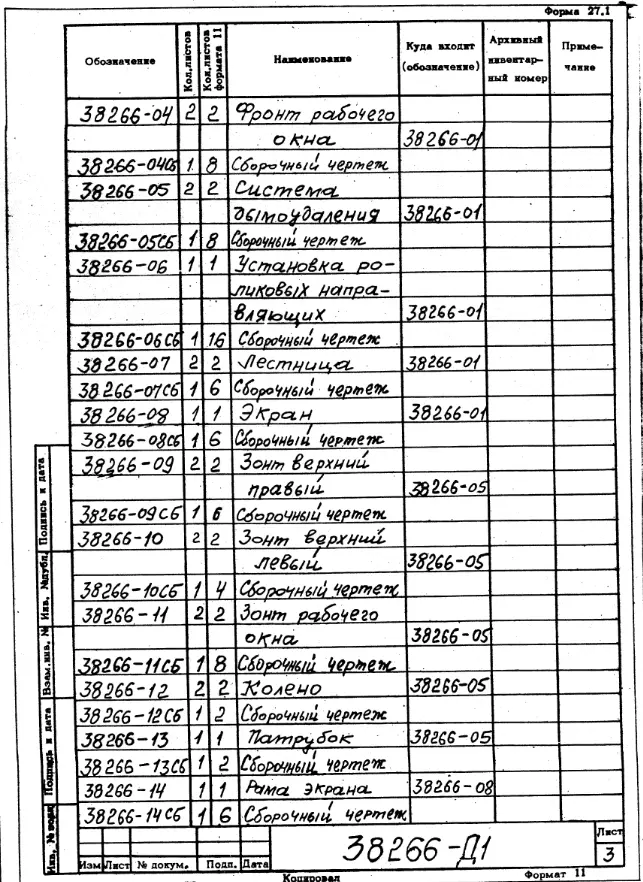 Форма 27.1
Обозначение Кол.листов Кол.листов формата 11 Наименование Куда входит (обозначение) Архивный инвентарный номер Примечание
38266-04 2 2 Фронт рабочего
окна 38266-01
38266-04СБ 1 8 Сборочный чертеж
38266-05 2 2 Система
дымоудаления 38266-01
38266-05СБ 1 8 Сборочный чертеж
38266-06 1 1 Установка ро-
ликовых напра-
вляющих 38266-01
38266-06СБ 1 16 Сборочный чертеж
38266-07 2 2 Лестница 38266-01
38266-07СБ 1 6 Сборочный чертеж
38266-08 1 1 Экран 38266-01
38266-08СБ 1 6 Сборочный чертеж
38266-09 2 2 Зонт верхний
правый 38266-05
38266-09СБ 1 6 Сборочный чертеж
38266-10 2 2 Зонт верхний
левый 38266-05
38266-10СБ 1 4 Сборочный чертеж
38266-11 2 2 Зонт рабочего
окна 38266-05
38266-11СБ 1 8 Сборочный чертеж
38266-12 2 2 Колено 38266-05
38266-12СБ 1 2 Сборочный чертеж
38266-13 1 1 Патрубок 38266-05
38266-13СБ 1 2 Сборочный чертеж
38266-14 1 1 Рама экрана 38266-08
38266-14СБ 1 6 Сборочный чертеж
Подпись и дата
Инв. №дубл.
Взам.инв. №
Подпись и дата
Инв. № подл
Изм Лист № докум. Подп. Дата
38266-Д1
Лист
3
Копировал Формат 11